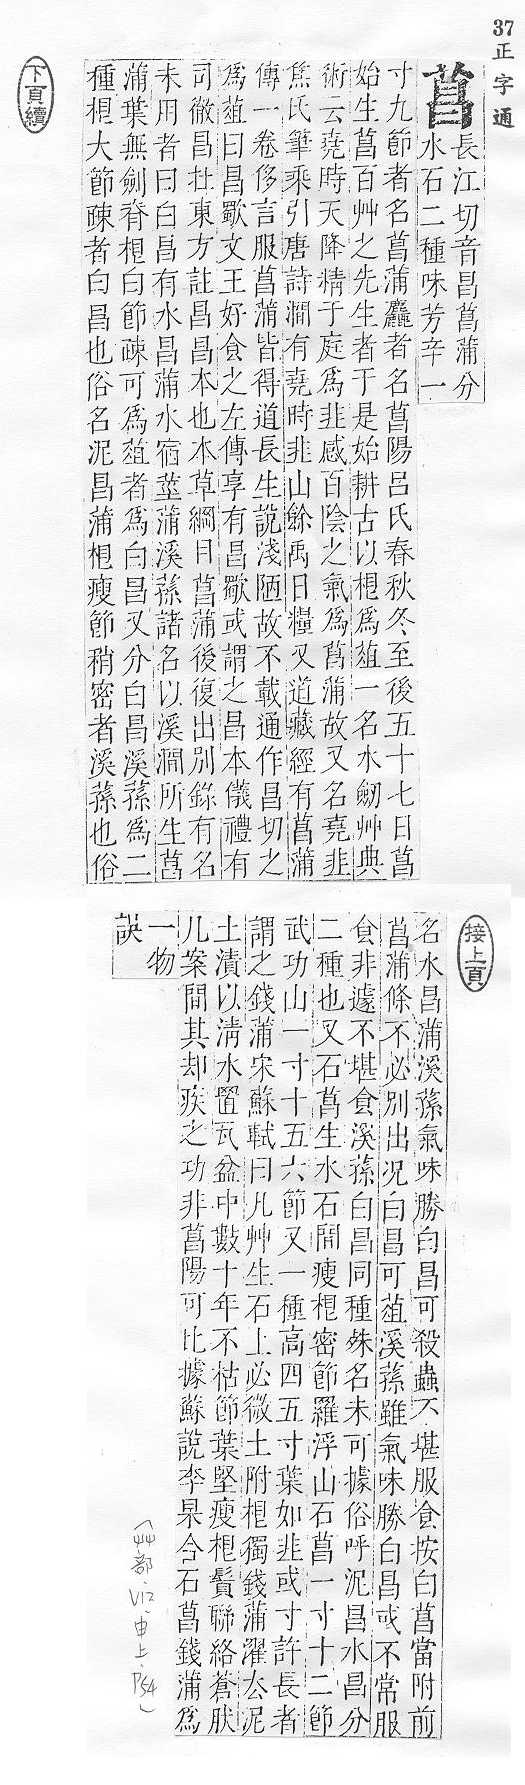 37
正字通
菖
長江切音昌菖蒲分
水石二種味芳辛一
寸九節者名菖蒲麤者名菖陽呂氏春秋冬至後五十七日菖
始生菖百艸之先生者于是始耕古以根爲菹一名水劒艸典
術云堯時天降精于庭爲韭感百陰之氣爲菖蒲故又名堯韭
焦氏筆乘引唐詩澗有堯時韭山餘禹日糧又道藏經有菖蒲
傳一卷侈言服菖蒲皆得道長生說淺陋故不載通作昌切之
爲菹曰昌歜文王好食之左傳享有昌歜或謂之昌本儀禮有
司徹昌在東方註昌昌本也本草綱目菖蒲後復出別錄有名
未用者曰白昌有水昌蒲水宿莖蒲溪蓀諸名以溪澗所生菖
蒲葉無劍脊根白節疎可爲菹者爲白昌又分白昌溪蓀爲二
種根大節疎者白昌也俗名泥昌蒲根瘦節稍密者溪蓀也俗
下頁續
接上頁
名水昌蒲溪蓀氣味勝白昌可殺蟲不堪服食按白菖當附前
菖蒲條不必別出况白昌可菹溪蓀雖氣味勝白昌或不常服
食非遽不堪食溪蓀白昌同種殊名未可據俗呼泥昌水昌分
二種也又石菖生水石間瘦根密節羅浮山石菖一寸十二節
武功山一寸十五六節又一種高四五寸葉如韭或寸許長者
謂之錢蒲宋蘇軾曰凡艸生石上必微土附根獨錢蒲濯去泥
土漬以淸水置瓦盆中數十年不枯節葉堅瘦根鬚聯絡蒼肰
几案間其却疾之功非菖陽可比據蘇說李杲合石菖錢蒲爲
一物
誤
(艸部.V12.申上.P54)